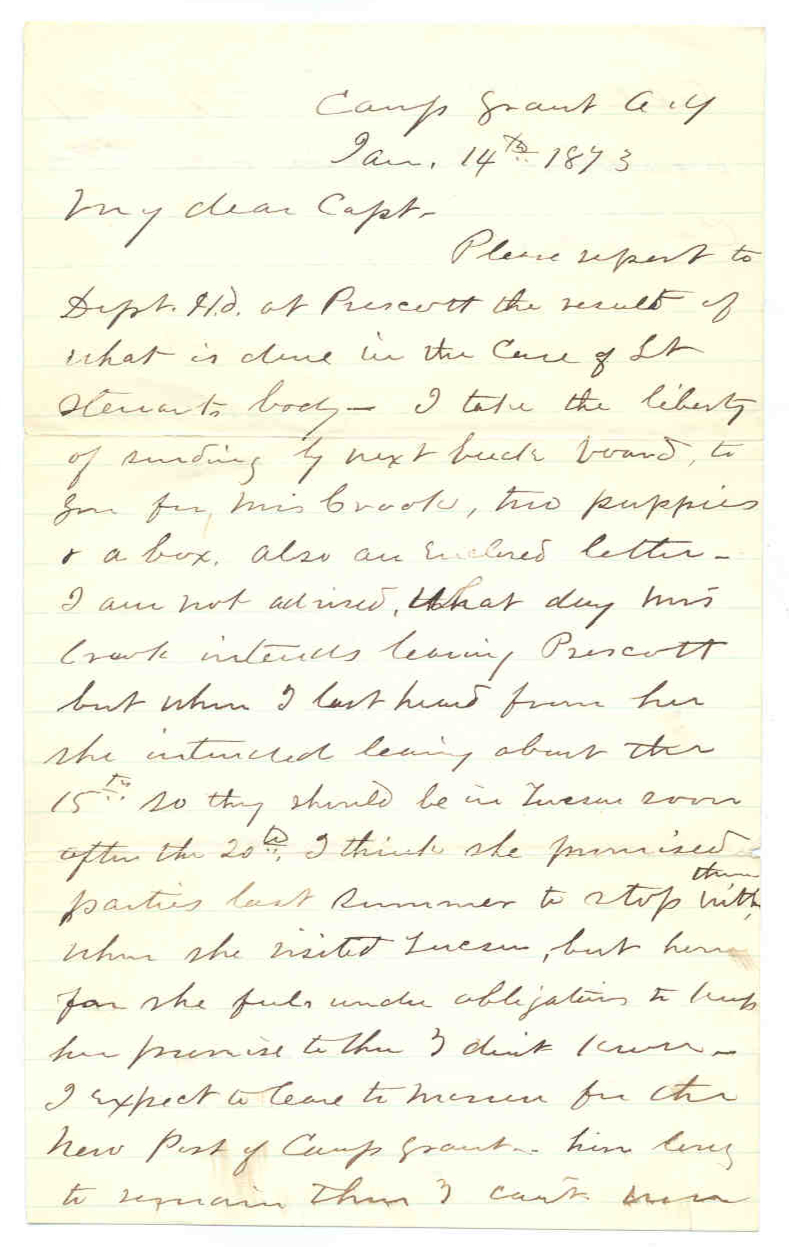 Camp Grant A.T.
Jan. 14th 1873
My dear Capt-
Please report to
Dept. Hd. at Prescott the result of
what is done in the Case of Lt
Stewarts body - I take the liberty
of sending by next buck board, to
you for Mrs Crook, two puppies
& a box. also an Enclosed letter -
I am not advised, What day Mrs
Crook intends leaving Prescott
but when I last heard from her
she intended leaving about the
15th so they should be in Tucson soon
after the 20th. I think she promised
parties last summer to stop with them
when she visited Tucson, but how
far she feels under obligations to keep
her promise to them I dont know -
I expect to leave to morrow for the
New Post of Camp Grant - how long
to remain there I cant